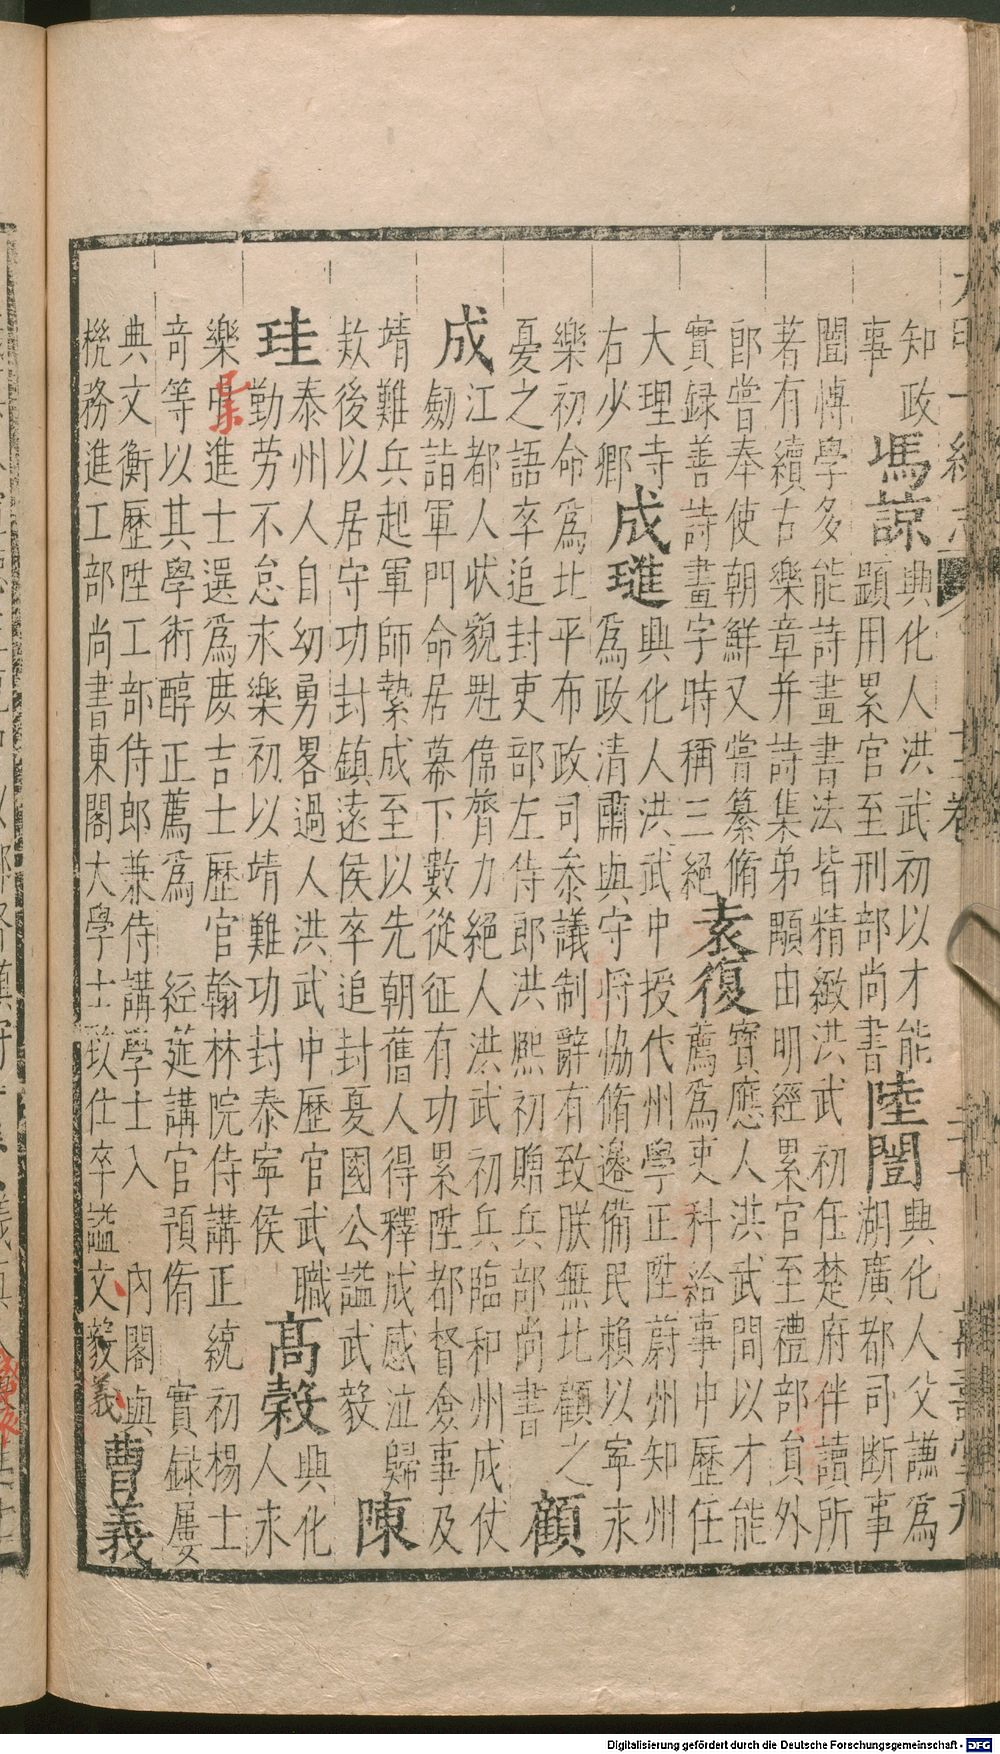 知政
事
馮諒
典化人洪武初以才能
顕用累官至刑部尚書
陸誾
興化人父謙為
湖廣都司断事
誾博學多能詩畫書法皆精緻洪武初任楚府伴讀所
著有續古樂章并詩集弟顒由明經累官至禮部員外
郎嘗奉使朝鮮又嘗纂脩
實録善詩畫字時稱三絕
袁復
寶應人洪武間以才能
薦為吏科給事中歷任
大理寺
右少卿
成璡
興化人洪武中授代州學正陞蔚州知州
為政清肅與守將恊脩邊備民賴以寧永
樂初命為北平布政司叅議制辭有致朕無北顧之
憂之語卒追封吏部左侍郎洪熙初贈兵部尚書
顧
成
江都人状貌魁偉膂力絕人洪武初兵臨和州成仗
劒詣軍門命居幕下數從征有功累陞都督僉事及
靖難兵起軍師縶成至以先朝舊人得釋成感泣歸
欵後以居守功封鎮遠侯卒追封夏國公謚武毅
陳
珪
泰州人自幼勇畧過人洪武中歷官武職
勤劳不怠永樂初以靖難功封泰寧侯
高穀
興化
人永
樂中進士選為庶吉士歷官翰林院侍講正統初楊士
奇等以其學術醇正薦為 經筵講官預脩 實録屢
典文衡歷陞工部侍郎兼侍講學士入 內閣與
機務進工部尚書東閣大學士致仕卒謚文毅義
曹義
Digitalisierung gefördert durch die Deutsche Forschungsgemeinschaft - DFG